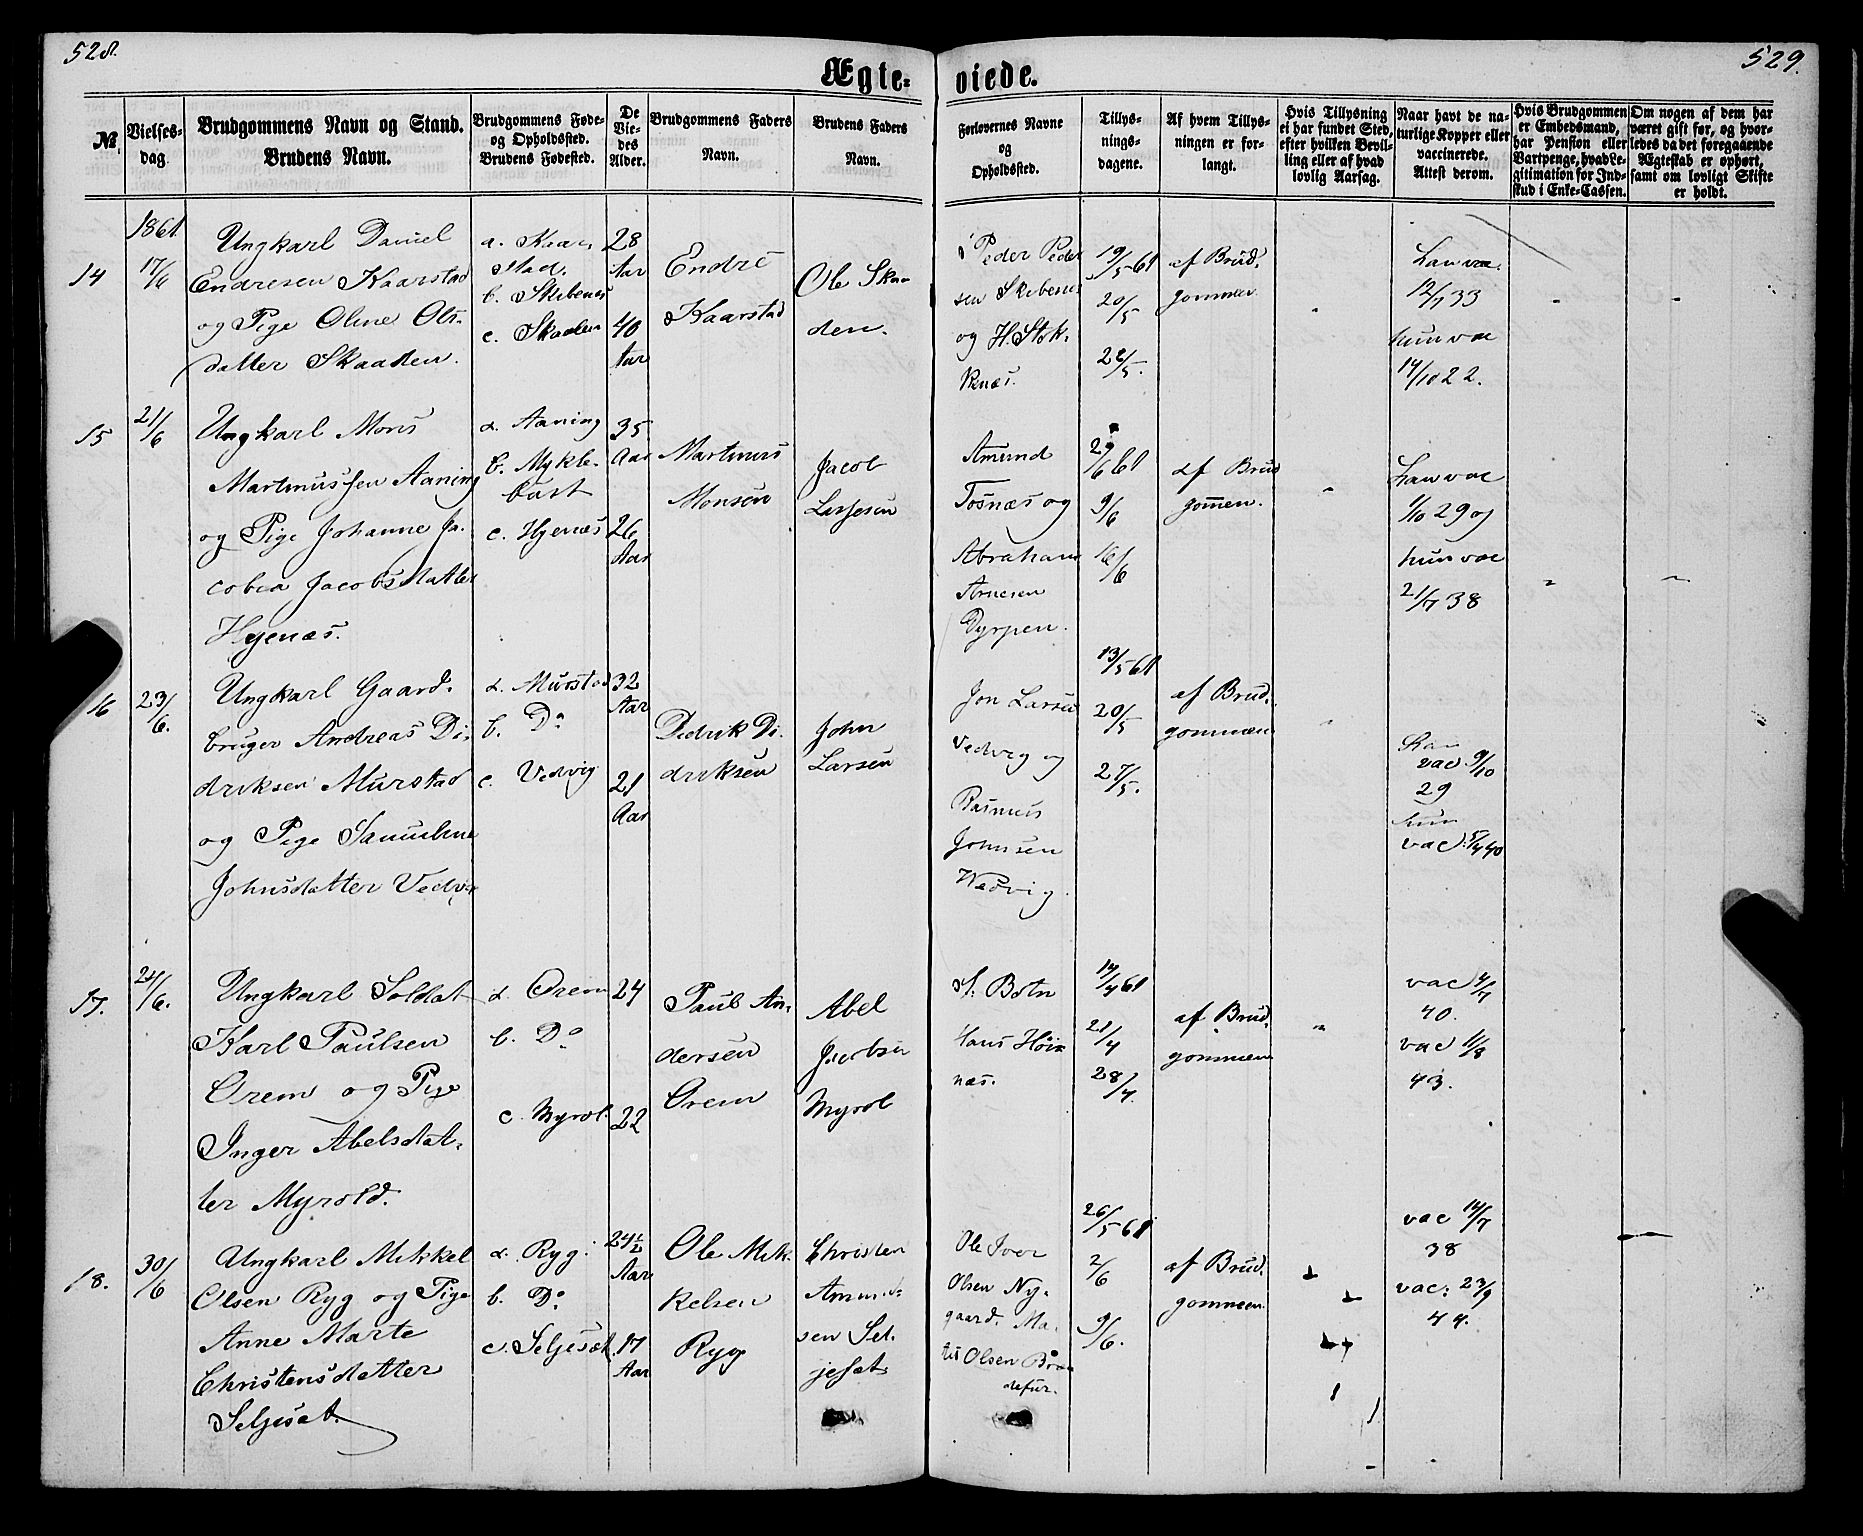 528.
529.
Ægte=
viede.
№
Vielses=
dag.
Brudgommens Navn og Stand.
Brudens Navn.
Brudgommens Føde=
og Opholdssted.
Brudens Fødested.
De
Vie=
des
Alder.
Brudgommens Faders
Navn.
Brudens Faders
Navn.
Forlovernes Navne
og
Opholdssted.
Tillys=
nings=
dagene.
Af hvem Tillys=
ningen er for=
langt.
Hvis Tillysning
ei har fundet Sted,
efter hvilken Bevil=
ling eller af hvad
lovlig Aarsag.
Naar havt de na=
turlige Kopper eller
vaccinerede.
Attest derom.
Hvis Brudgommen
er Embedsmand,
har Pension eller
Vartpenge, hvad Le=
gitimation for Ind=
skud i Enke=Cassen.
Om nogen af dem har
været gift før, og hvor=
ledes da det foregaaende
Ægteskab er ophørt,
samt om lovligt Skifte
er holdt.
14
1861
17/6
Ungkarl Daniel
Endresen Kaarstad
og Pige Oline Ols=
datter Skaaden.
a. Kaar=
stad.
b. Skibenes
c. Skaaden
28
Aar
40
Aar
Endre
Kaarstad
Ole Skaa
den.
Peder Peder
sen Skibenes
og H. Stok=
kenæs.
19/5 61
20/5
26/5.
af Brud=
gommen
han vac.
12/7 33
hun vac
14/10 22.
15
21/6
Ungkarl Mons
Martinussen Aaning
og Pige Johanne Ja=
cobea Jacobsdatter
Hyenæs.
a. Aaning
b. Mykle=
bust
c. Hyenæs
35
Aar
26
Aar
Martinus
Monsen
Jacob
Lassesen
Amund
Tosnæs og
Abraham
Arnesen
Dyrpen.
2/6 61
9/6
16/6
af Brud
gommen.
han vac
1/10 29 og
hun vac
21/7 38
16
23/6.
Ungkarl Gaard=
bruger Andreas Di=
driksen Murstad
og Pige Samueline
Johnsdatter Vedvig
a. Murstad
b. Do
c. Vedvig
32
Aar
21
Aar
Didrik Di=
driksen
John
Larsen
Jon Larsen
Vedvig og
Rasmus
Johnsen
Wedvig.
13/5 61
20/5
27/5.
af Brud=
gommen
han
vac. 9/10
29
hun
vac. 5/4 40
17.
24/6.
Ungkarl Soldat
Karl Paulsen
Orem og Pige
Inger Abelsdat=
ter Myrold.
a. Orem
b. Do
c. Myrol.
24
22
Paul An=
dersen
Orem
Abel
Jacobsen
Myrol
S. Botn
Hans Høi=
næs.
14/4 61
21/4
28/4.
af Brud=
gommen
vac 4/7
40.
vac 11/8
43.
18.
30/6
Ungkarl Mikkel
Olsen Ryg og Pige
Anne Marte
Christensdatter
Seljeset.
a. Ryg.
b. Do
c. Seljeset.
24½
Aar
17
Aar
Ole Mik=
kelsen
Ryg
Christen
Amund=
sen Sel=
jeset
Ole Iver
Olsen Ny=
gaard. Ma=
tis Olsen
26/5 61
2/6
9/6.
af Brud=
gommen
vac 14/7
38
vac: 23/9
44.